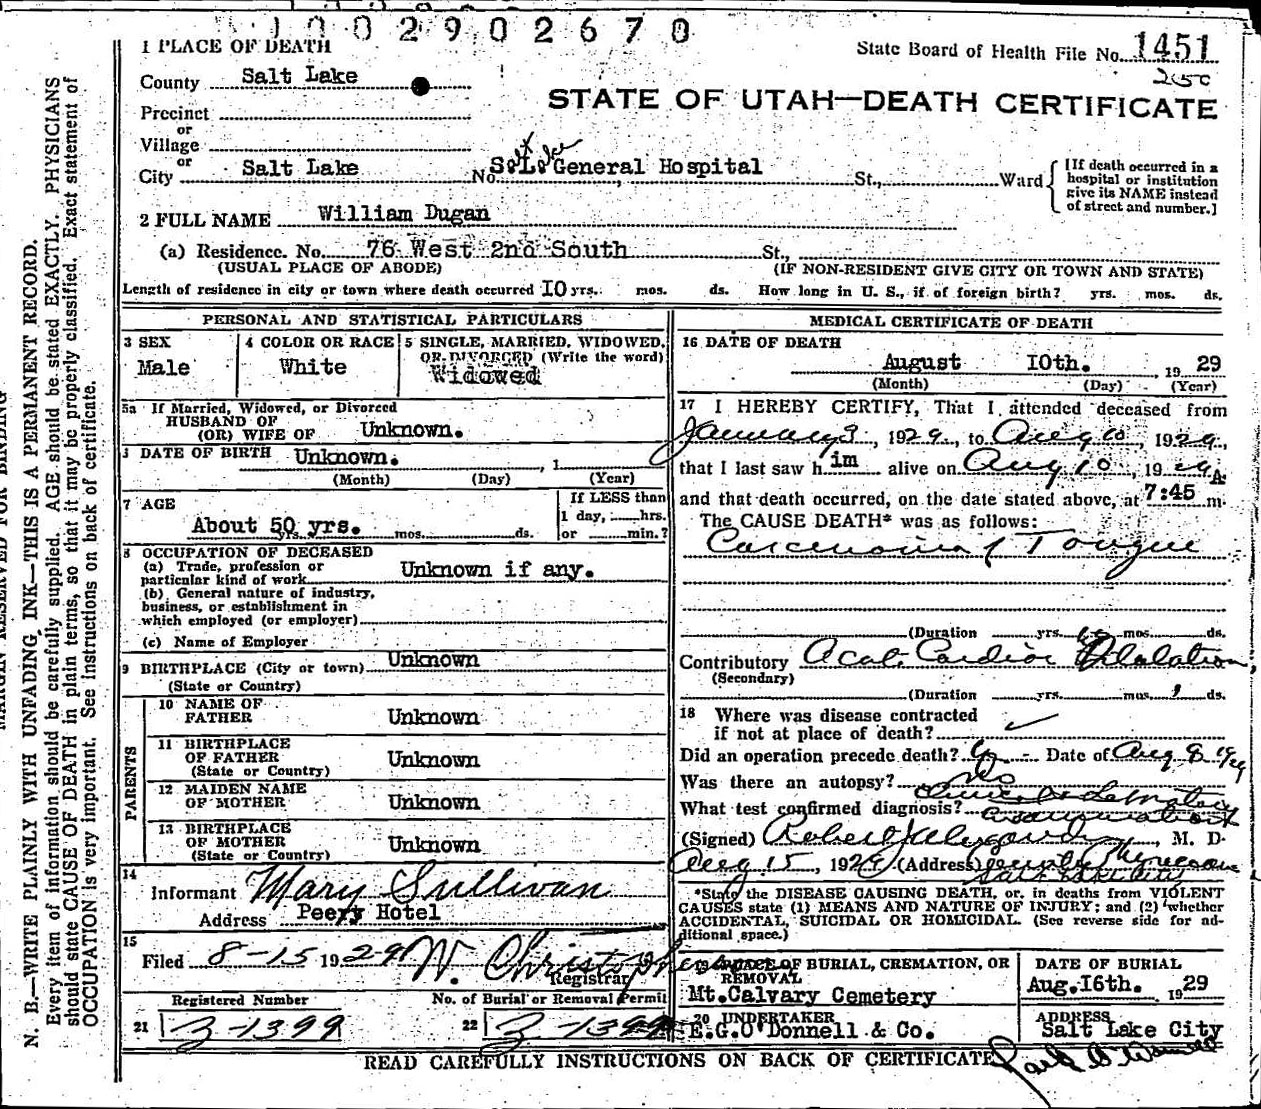 1002902670
1 PLACE OF DEATH
State Board of Health File No. 1451
County Salt Lake
STATE OF UTAH—DEATH CERTIFICATE
Precinct
or
Village
or
City Salt Lake No. S.L. General Hospital St., Ward
[If death occurred in a
hospital or institution
give its NAME instead
of street and number.]
2 FULL NAME William Dugan
(a) Residence. No. 76 West 2nd South St.,
(USUAL PLACE OF ABODE) (IF NON-RESIDENT GIVE CITY OR TOWN AND STATE)
Length of residence in city or town where death occurred 10 yrs. mos. ds. How long in U. S., if of foreign birth? yrs. mos. ds.
PERSONAL AND STATISTICAL PARTICULARS
3 SEX
Male
4 COLOR OR RACE
White
5 SINGLE, MARRIED, WIDOWED,
OR DIVORCED (Write the word)
Widowed
5a If Married, Widowed, or Divorced
HUSBAND OF
(OR) WIFE OF Unknown.
DATE OF BIRTH Unknown. , 1
(Month) (Day) (Year)
7 AGE
About 50 yrs. yrs. mos. ds.
If LESS than
1 day, hrs.
or min.?
8 OCCUPATION OF DECEASED
(a) Trade, profession or
particular kind of work Unknown if any.
(b) General nature of industry,
business, or establishment in
which employed (or employer)
(c) Name of Employer
9 BIRTHPLACE (City or town) Unknown
(State or Country)
PARENTS
10 NAME OF
FATHER Unknown
11 BIRTHPLACE
OF FATHER Unknown
(State or Country)
12 MAIDEN NAME
OF MOTHER Unknown
13 BIRTHPLACE
OF MOTHER Unknown
(State or Country)
14
Informant Mary Sullivan
Address Peery Hotel
15
Filed 8-15 1929 W. Christopherson
Registrar
Registered Number
21 3-1399
No. of Burial or Removal Permit
22 3-1399
MEDICAL CERTIFICATE OF DEATH
16 DATE OF DEATH
August 10th. 19 29
(Month) (Day) (Year)
17 I HEREBY CERTIFY, That I attended deceased from
January 9, 1929, to Aug 10, 1929,
that I last saw him alive on Aug 10, 1929
and that death occurred, on the date stated above, at 7:45 A. m.
The CAUSE DEATH* was as follows:
Carcenoma of Tongue
(Duration yrs. mos. ds.
Contributory Acute Cardiac Dilalation,
(Secondary)
(Duration yrs. mos. ds.
18 Where was disease contracted
if not at place of death?
Did an operation precede death? Date of Aug 8 1929
Was there an autopsy? No
What test confirmed diagnosis?
(Signed) Robert M. D.
Aug 15, 1929 (Address)
Salt Lake City
*State the DISEASE CAUSING DEATH, or, in deaths from VIOLENT
CAUSES state (1) MEANS AND NATURE OF INJURY; and (2) whether
ACCIDENTAL, SUICIDAL OR HOMICIDAL. (See reverse side for ad-
ditional space.)
19 PLACE OF BURIAL, CREMATION, OR
REMOVAL
Mt. Calvary Cemetery
DATE OF BURIAL
Aug. 16th. 19 29
20 UNDERTAKER
E.G. O'Donnell & Co.
ADDRESS
Salt Lake City
READ CAREFULLY INSTRUCTIONS ON BACK OF CERTIFICATE
MARGIN RESERVED FOR BINDING
N. B.—WRITE PLAINLY WITH UNFADING INK—THIS IS A PERMANENT RECORD.
Every item of information should be carefully supplied. AGE should be stated EXACTLY. PHYSICIANS
should state CAUSE OF DEATH in plain terms, so that it may be properly classified. Exact statement of
OCCUPATION is very important. See instructions on back of certificate.